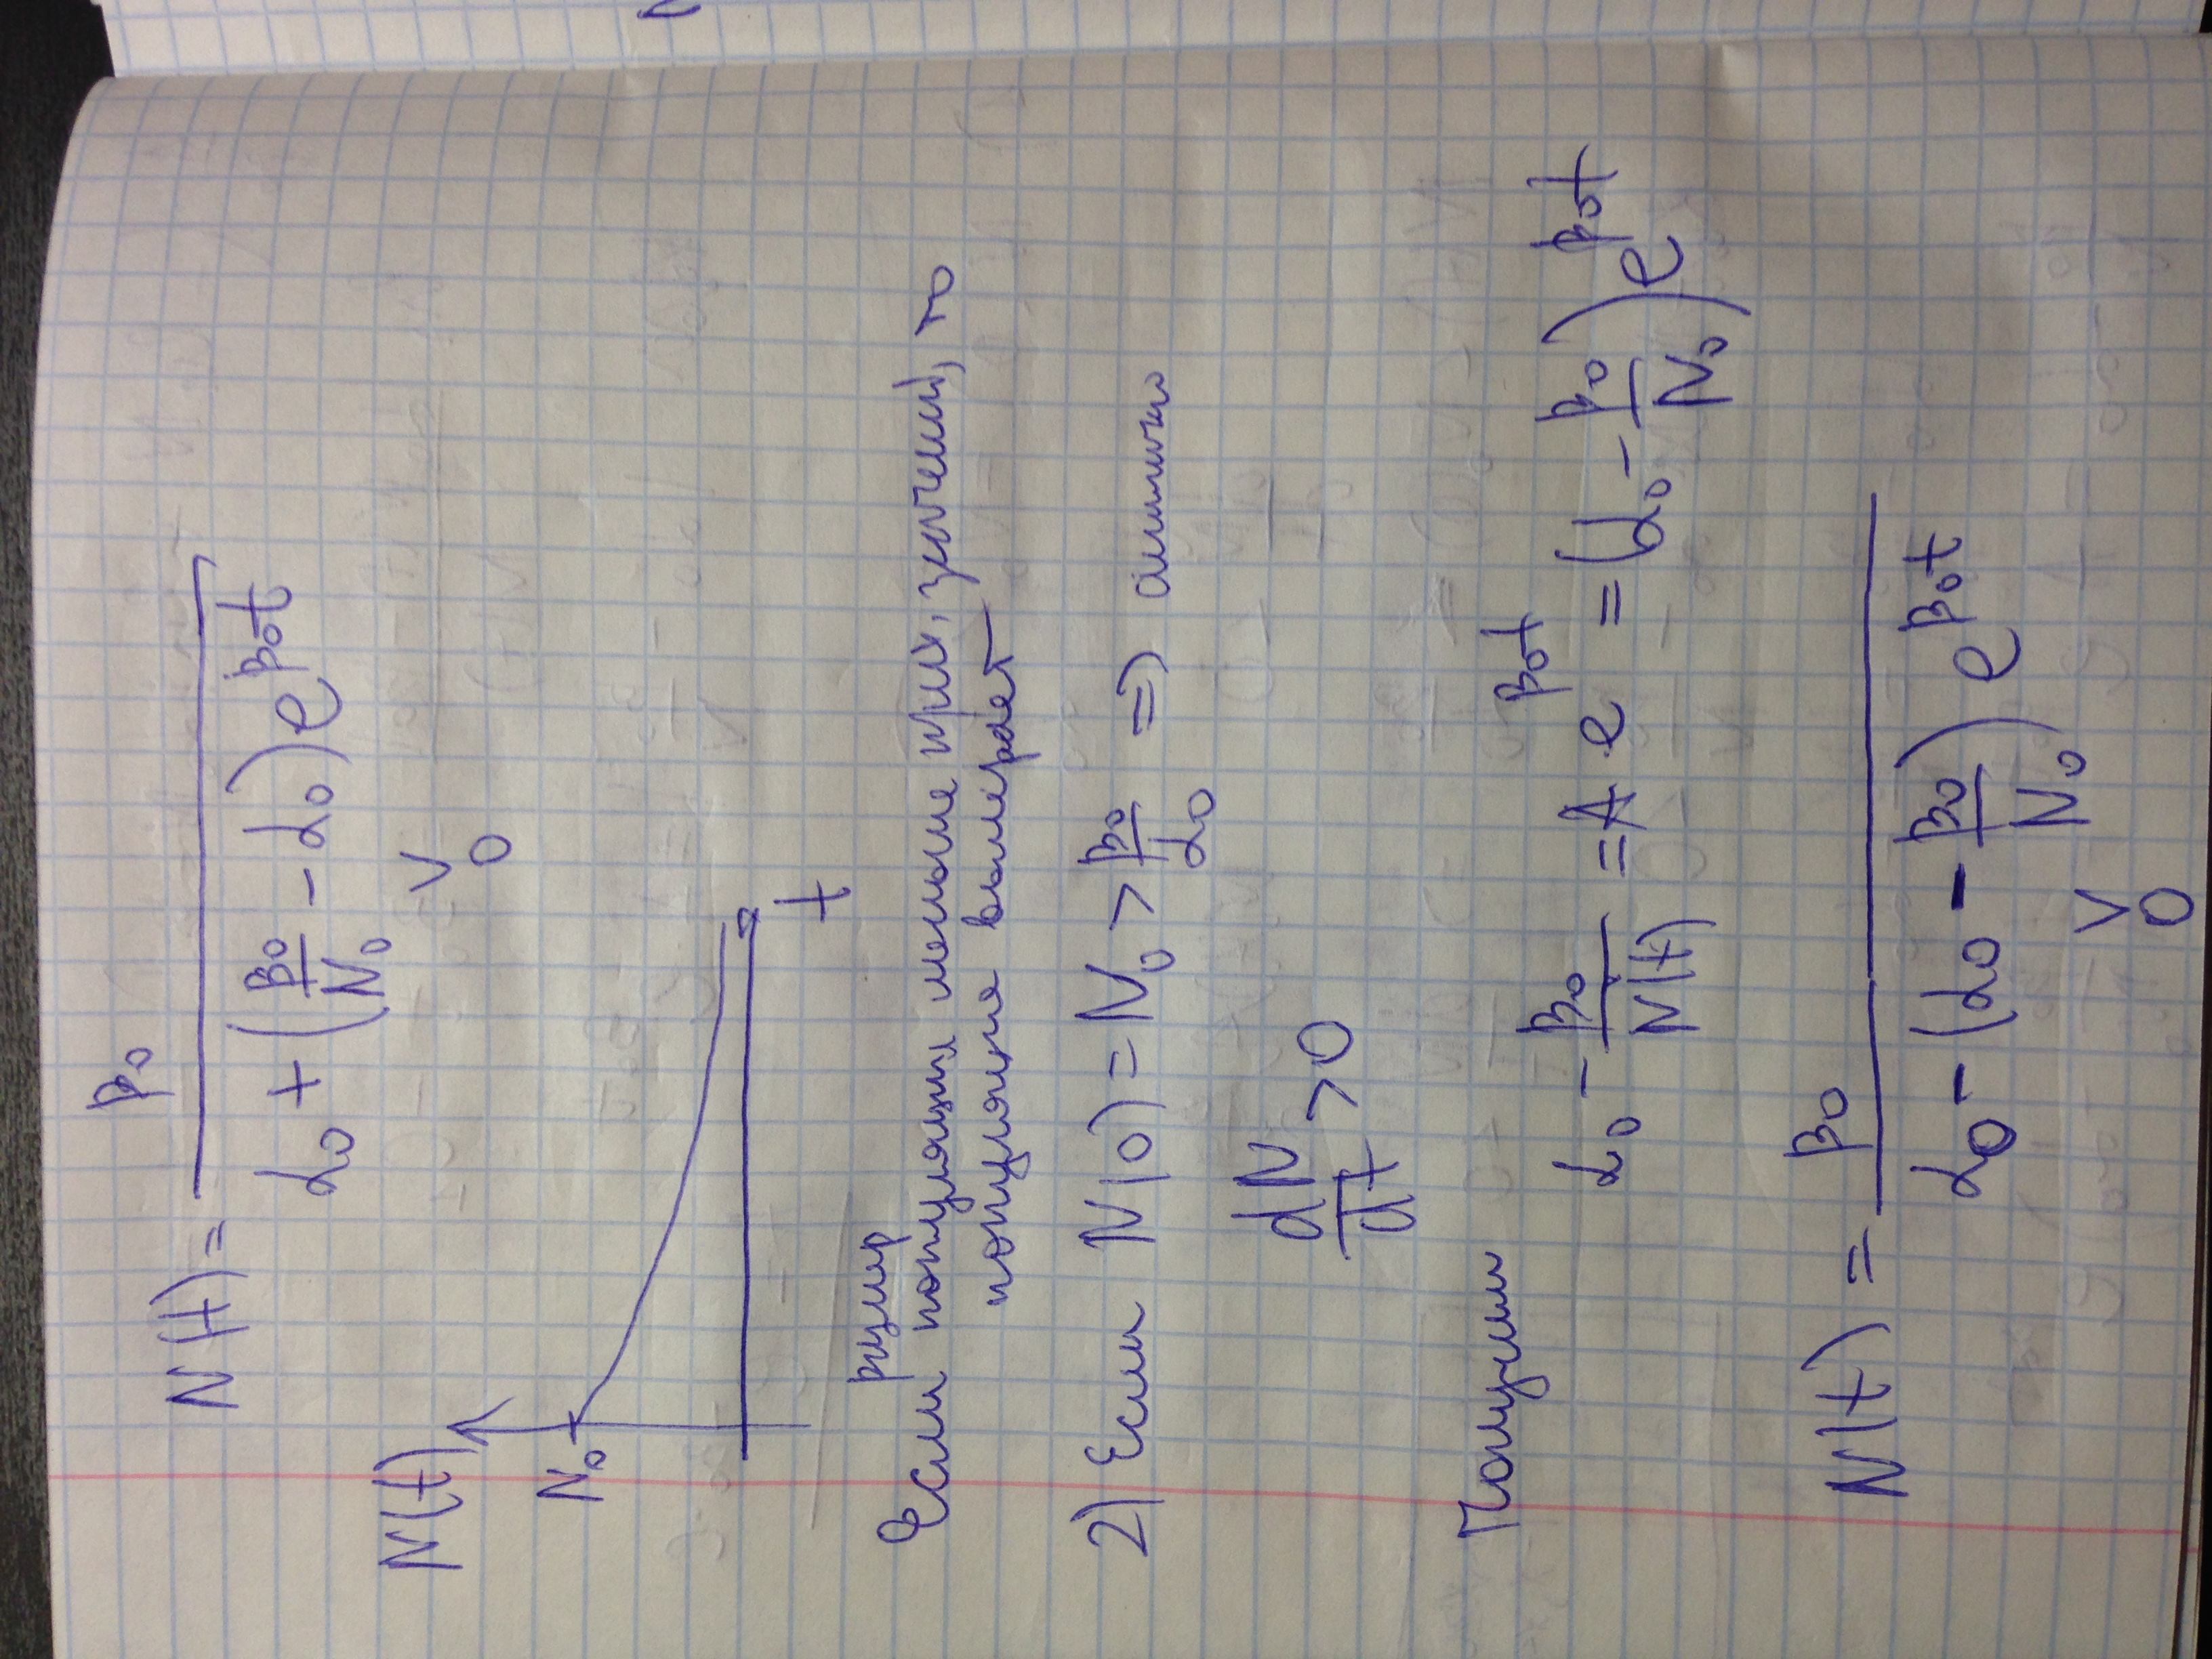 N(t) = β₀ / (α₀ + (β₀/N₀ - α₀) e^(β₀t))
V
0
N(t)
N₀
t
размер
Если популяции меньше крит. значения, то
популяция вымирает
2) Если N(0) = N₀ > β₀/α₀ ⇒ аналично
dN/dt > 0
Получим
α₀ - β₀/N(t) = A·e^(β₀t) = (α₀ - β₀/N₀) e^(β₀t)
N(t) = β₀ / (α₀ - (α₀ - β₀/N₀) e^(β₀t))
V
0